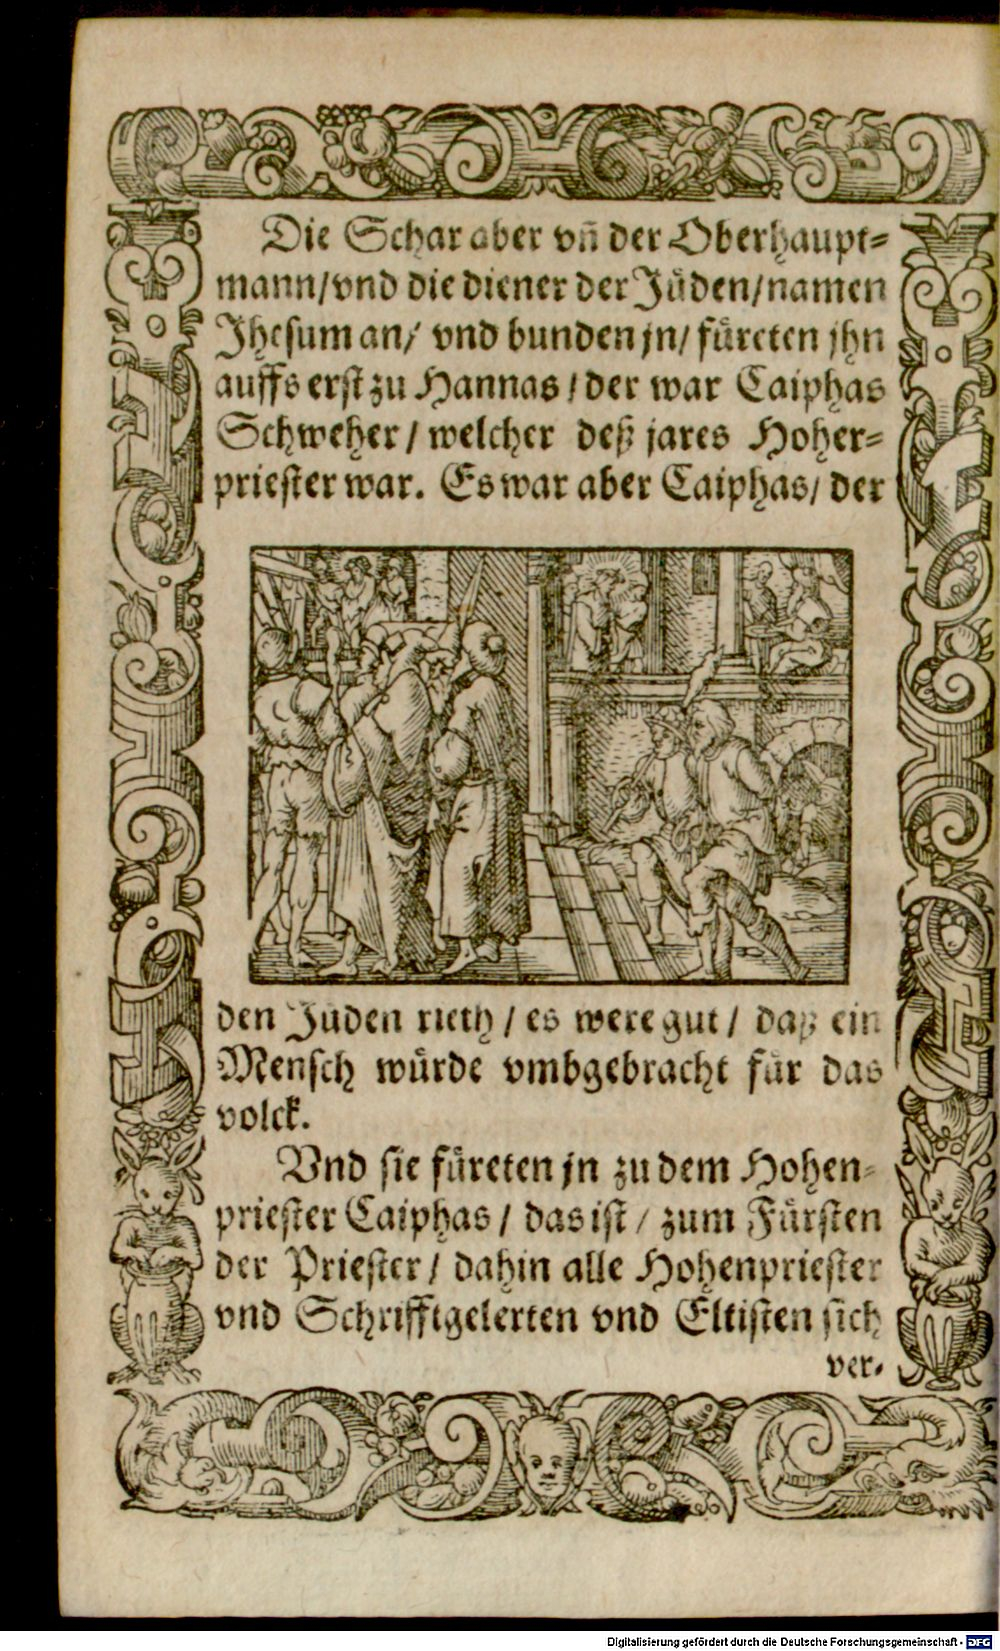 Die Schar aber vn̄ der Oberhaupt⸗
mann/vnd die diener der Jüden/namen
Jhesum an/ vnd bunden jn/ füreten jhn
auffs erst zu Hannas / der war Caiphas
Schweher / welcher deß jares Hoher⸗
priester war. Es war aber Caiphas/ der
den Jüden rieth / es were gut / daß ein
Mensch würde vmbgebracht für das
volck.
Vnd sie füreten jn zu dem Hohen⸗
priester Caiphas / das ist / zum Fürsten
der Priester / dahin alle Hohenpriester
vnd Schrifftgelerten vnd Eltisten sich
ver⸗
Digitalisierung gefördert durch die Deutsche Forschungsgemeinschaft - DFG